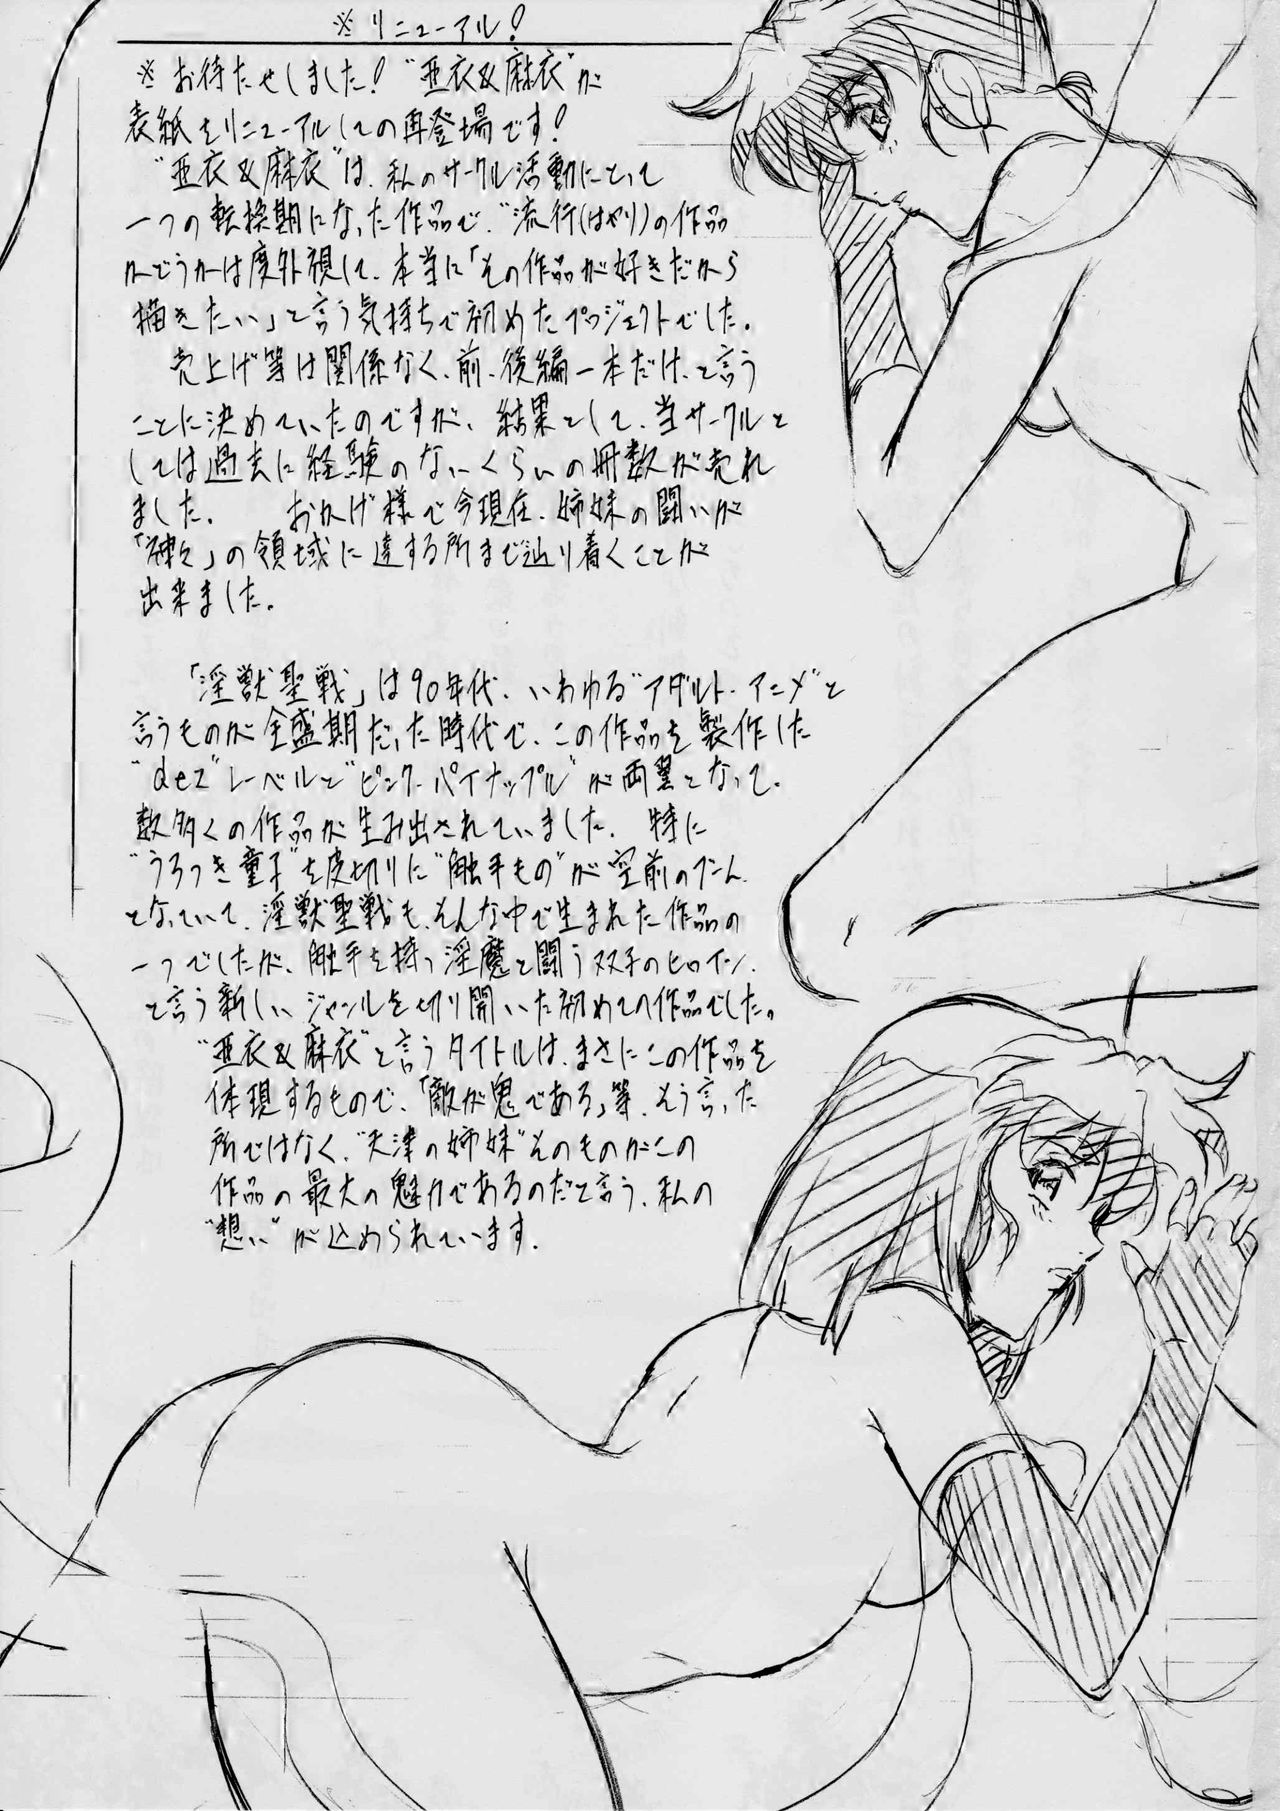 ※リニューアル!
※お待たせしました! “亜衣&麻衣”が
表紙をリニューアルしての再登場です!
“亜衣&麻衣”は、私のサークル活動にとって
一つの転換期になった作品で、“流行(はやり)の作品
かどうかは度外視して、本当に「その作品が好きだから
描きたい」と言う気持ちで初めたプロジェクトでした。
売上げ等は関係なく、前、後編一本だけ、と言う
ことに決めていたのですが、結果として、当サークルと
しては過去に経験のないくらいの冊数が売れ
ました。 おかげ様で今現在、姉妹の闘いが
「神々」の領域に達する所まで辿り着くことが
出来ました。
「淫獣聖戦」は90年代、いわゆる“アダルト・アニメ”と
言うものが全盛期だった時代で、この作品を製作した
“dez”レーベルと“ピンク・パイナップル”が両翼となって、
数多くの作品が生み出されていました。 特に
“うろつき童子”を皮切りに“触手もの”が空前のブーム
となっていて、淫獣聖戦も、そんな中で生まれた作品の
一つでしたが、触手を持つ淫魔と闘う双子のヒロイン、
と言う新しいジャンルを切り開いた初めての作品でした。
“亜衣&麻衣”と言うタイトルは、まさにこの作品を
体現するもので、「敵が鬼である」等、そう言った
所ではなく、“天津の姉妹”そのものがこの
作品の最大の魅力であるのだと言う、私の
“想い”が込められています。